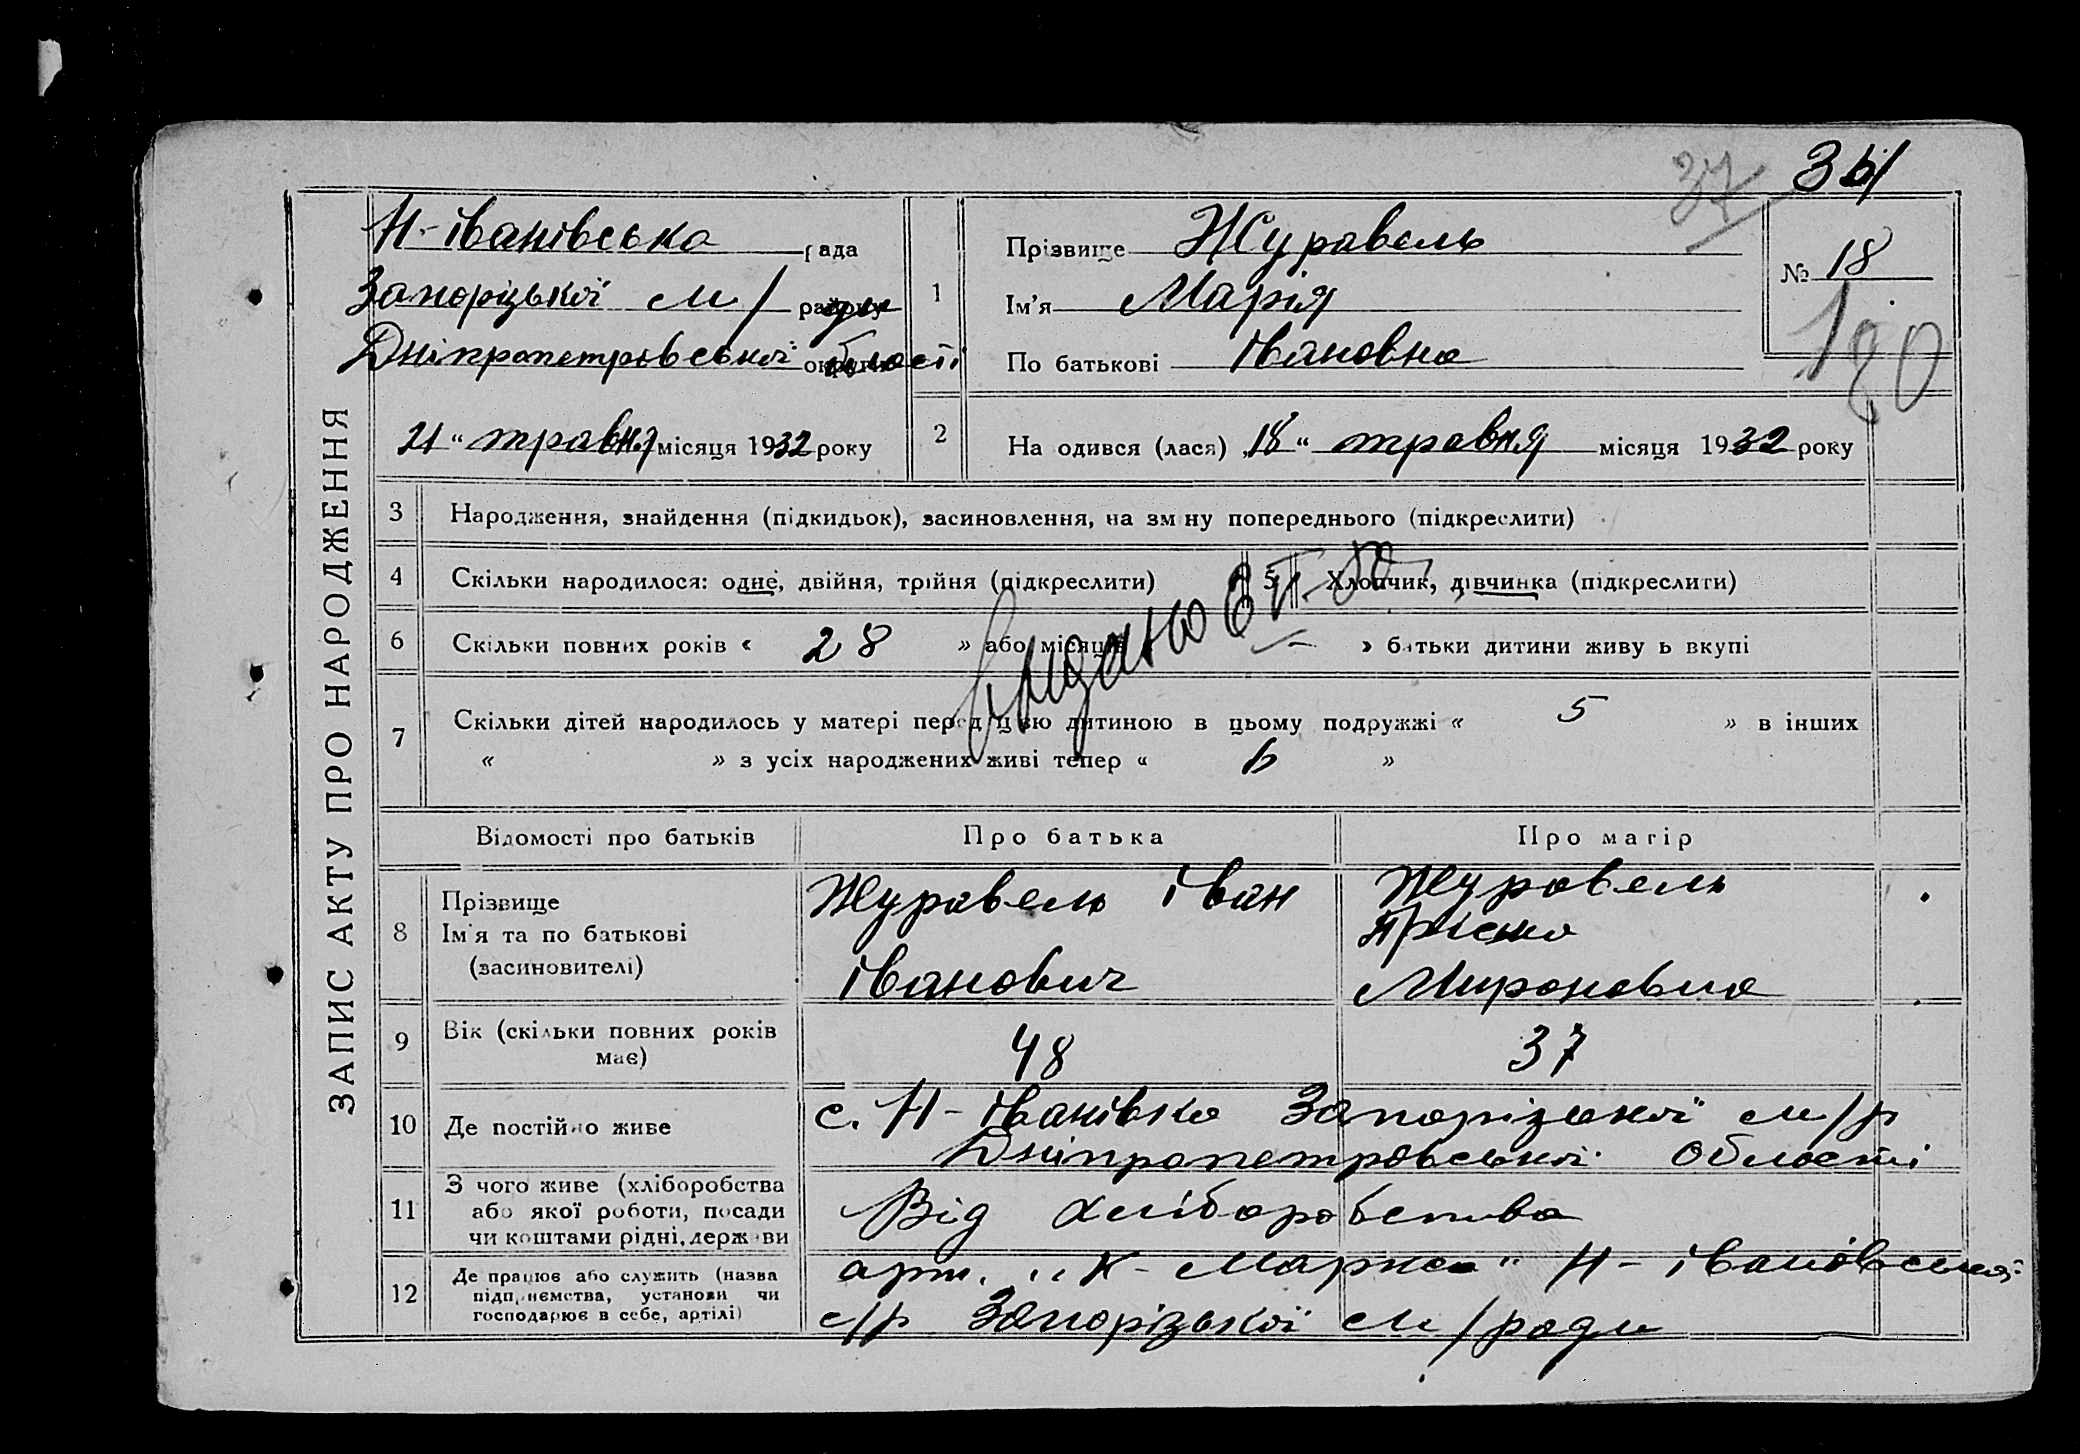 37 36
ЗАПИС АКТУ ПРО НАРОДЖЕННЯ
Н-Іванівська рада
Запорізької м/ району
Дніпропетровської області
21 " травня місяця 1932 року
1
Прізвище Журавель
Ім'я Марія
По батькові Івановна
№ 18
180
2 На одився (лася) „18" травня місяця 1932 року
3 Народження, знайдення (підкидьок), засиновлення, на зм ну попереднього (підкреслити)
4 Скільки народилося: одне, двійня, трійня (підкреслити) 5 Хлопчик, дівчинка (підкреслити)
6 Скільки повних років « 28 » або місяців « – » батьки дитини живу ь вкупі
Видано
7 Скільки дітей народилось у матері перед цією дитиною в цьому подружжі « 5 » в інших
« » з усіх народжених живі тепер « 6 »
Відомості про батьків Про батька Про матір
8 Прізвище
Ім'я та по батькові
(засиновителі)
Журавель Іван
Іванович
Журавель
Мироновна
9 Вік (скільки повних років
має)
48 37
10 Де постійно живе с. Н-Іванівка Запорізької м/р
Дніпропетровської області
11 З чого живе (хліборобства
або якої роботи, посади
чи коштами рідні, держави
Від хліборобства
12 Де працює або служить (назва
підприємства, установи чи
господарює в себе, артілі)
арт. „К-Маркса" Н-Івановської
с/р Запорізької м/ради